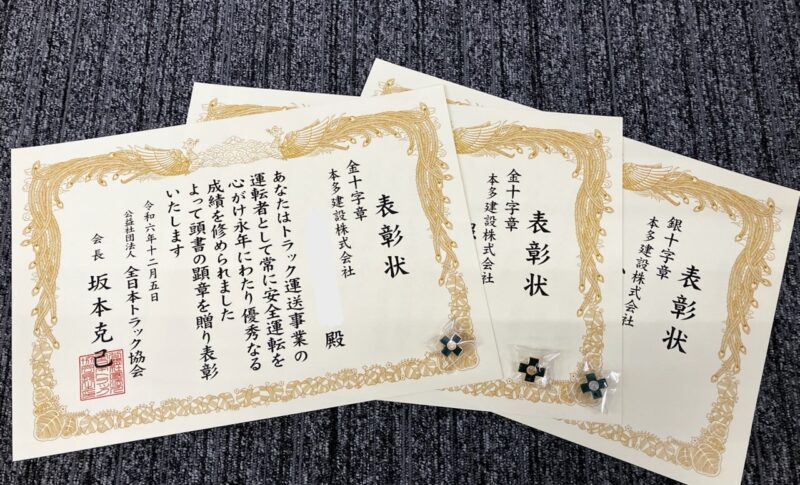 表彰状
金十字章
本多建設株式会社
殿
あなたはトラック運送事業の
運転者として常に安全運転を
心がけ永年にわたり優秀なる
成績を修められました
よって頭書の顕章を贈り表彰
いたします
令和六年十二月五日
公益社団法人 全日本トラック協会
会長 坂本克己
表彰状
金十字章
本多建設株式会社
表彰状
銀十字章
本多建設株式会社